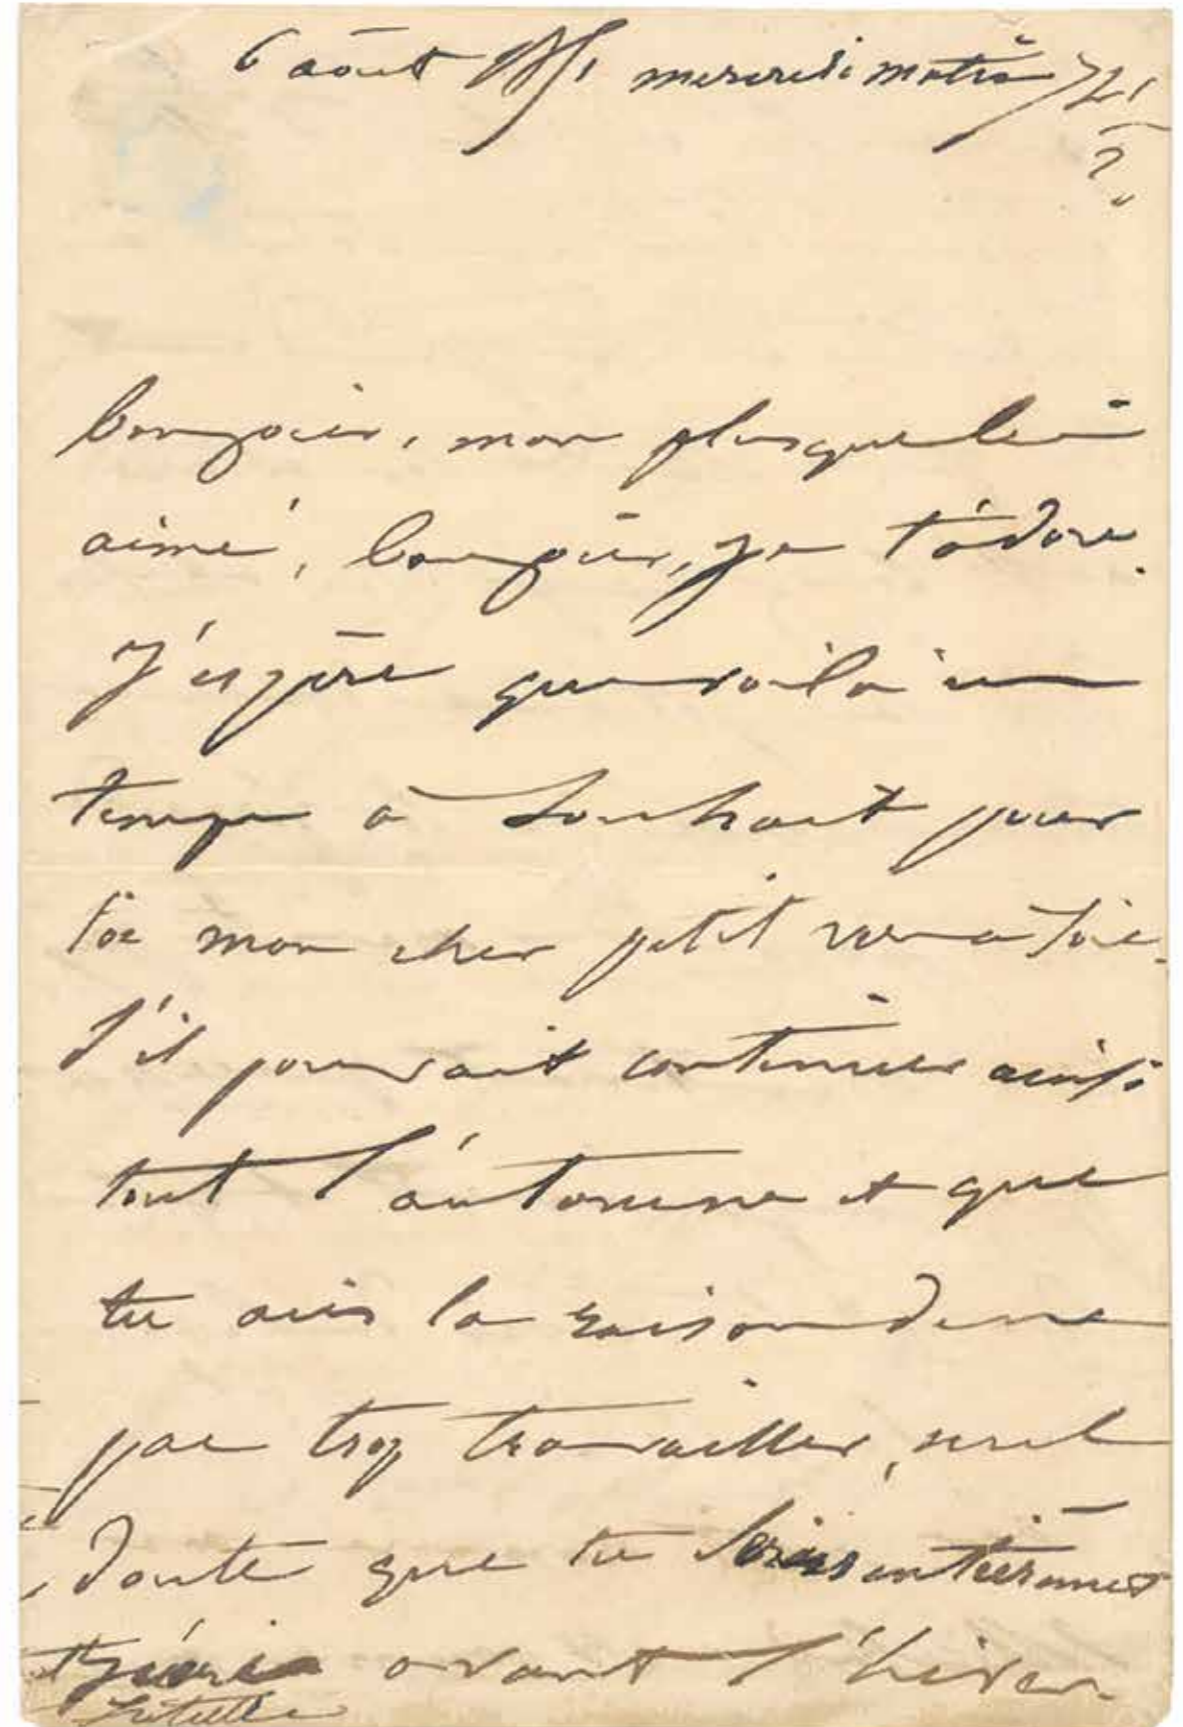 6 août mercredi matin 7h
bonjour, mon plus que bien
aimé, bonjour, je t'adore.
J'espère que voilà un
temps à souhait pour
toi mon cher petit
s'il pouvait continuer ainsi
tout l'automne et que
tu aies la raison de ne
pas trop travailler, nul
doute que tu sois entièrement
guéri avant l'hiver.